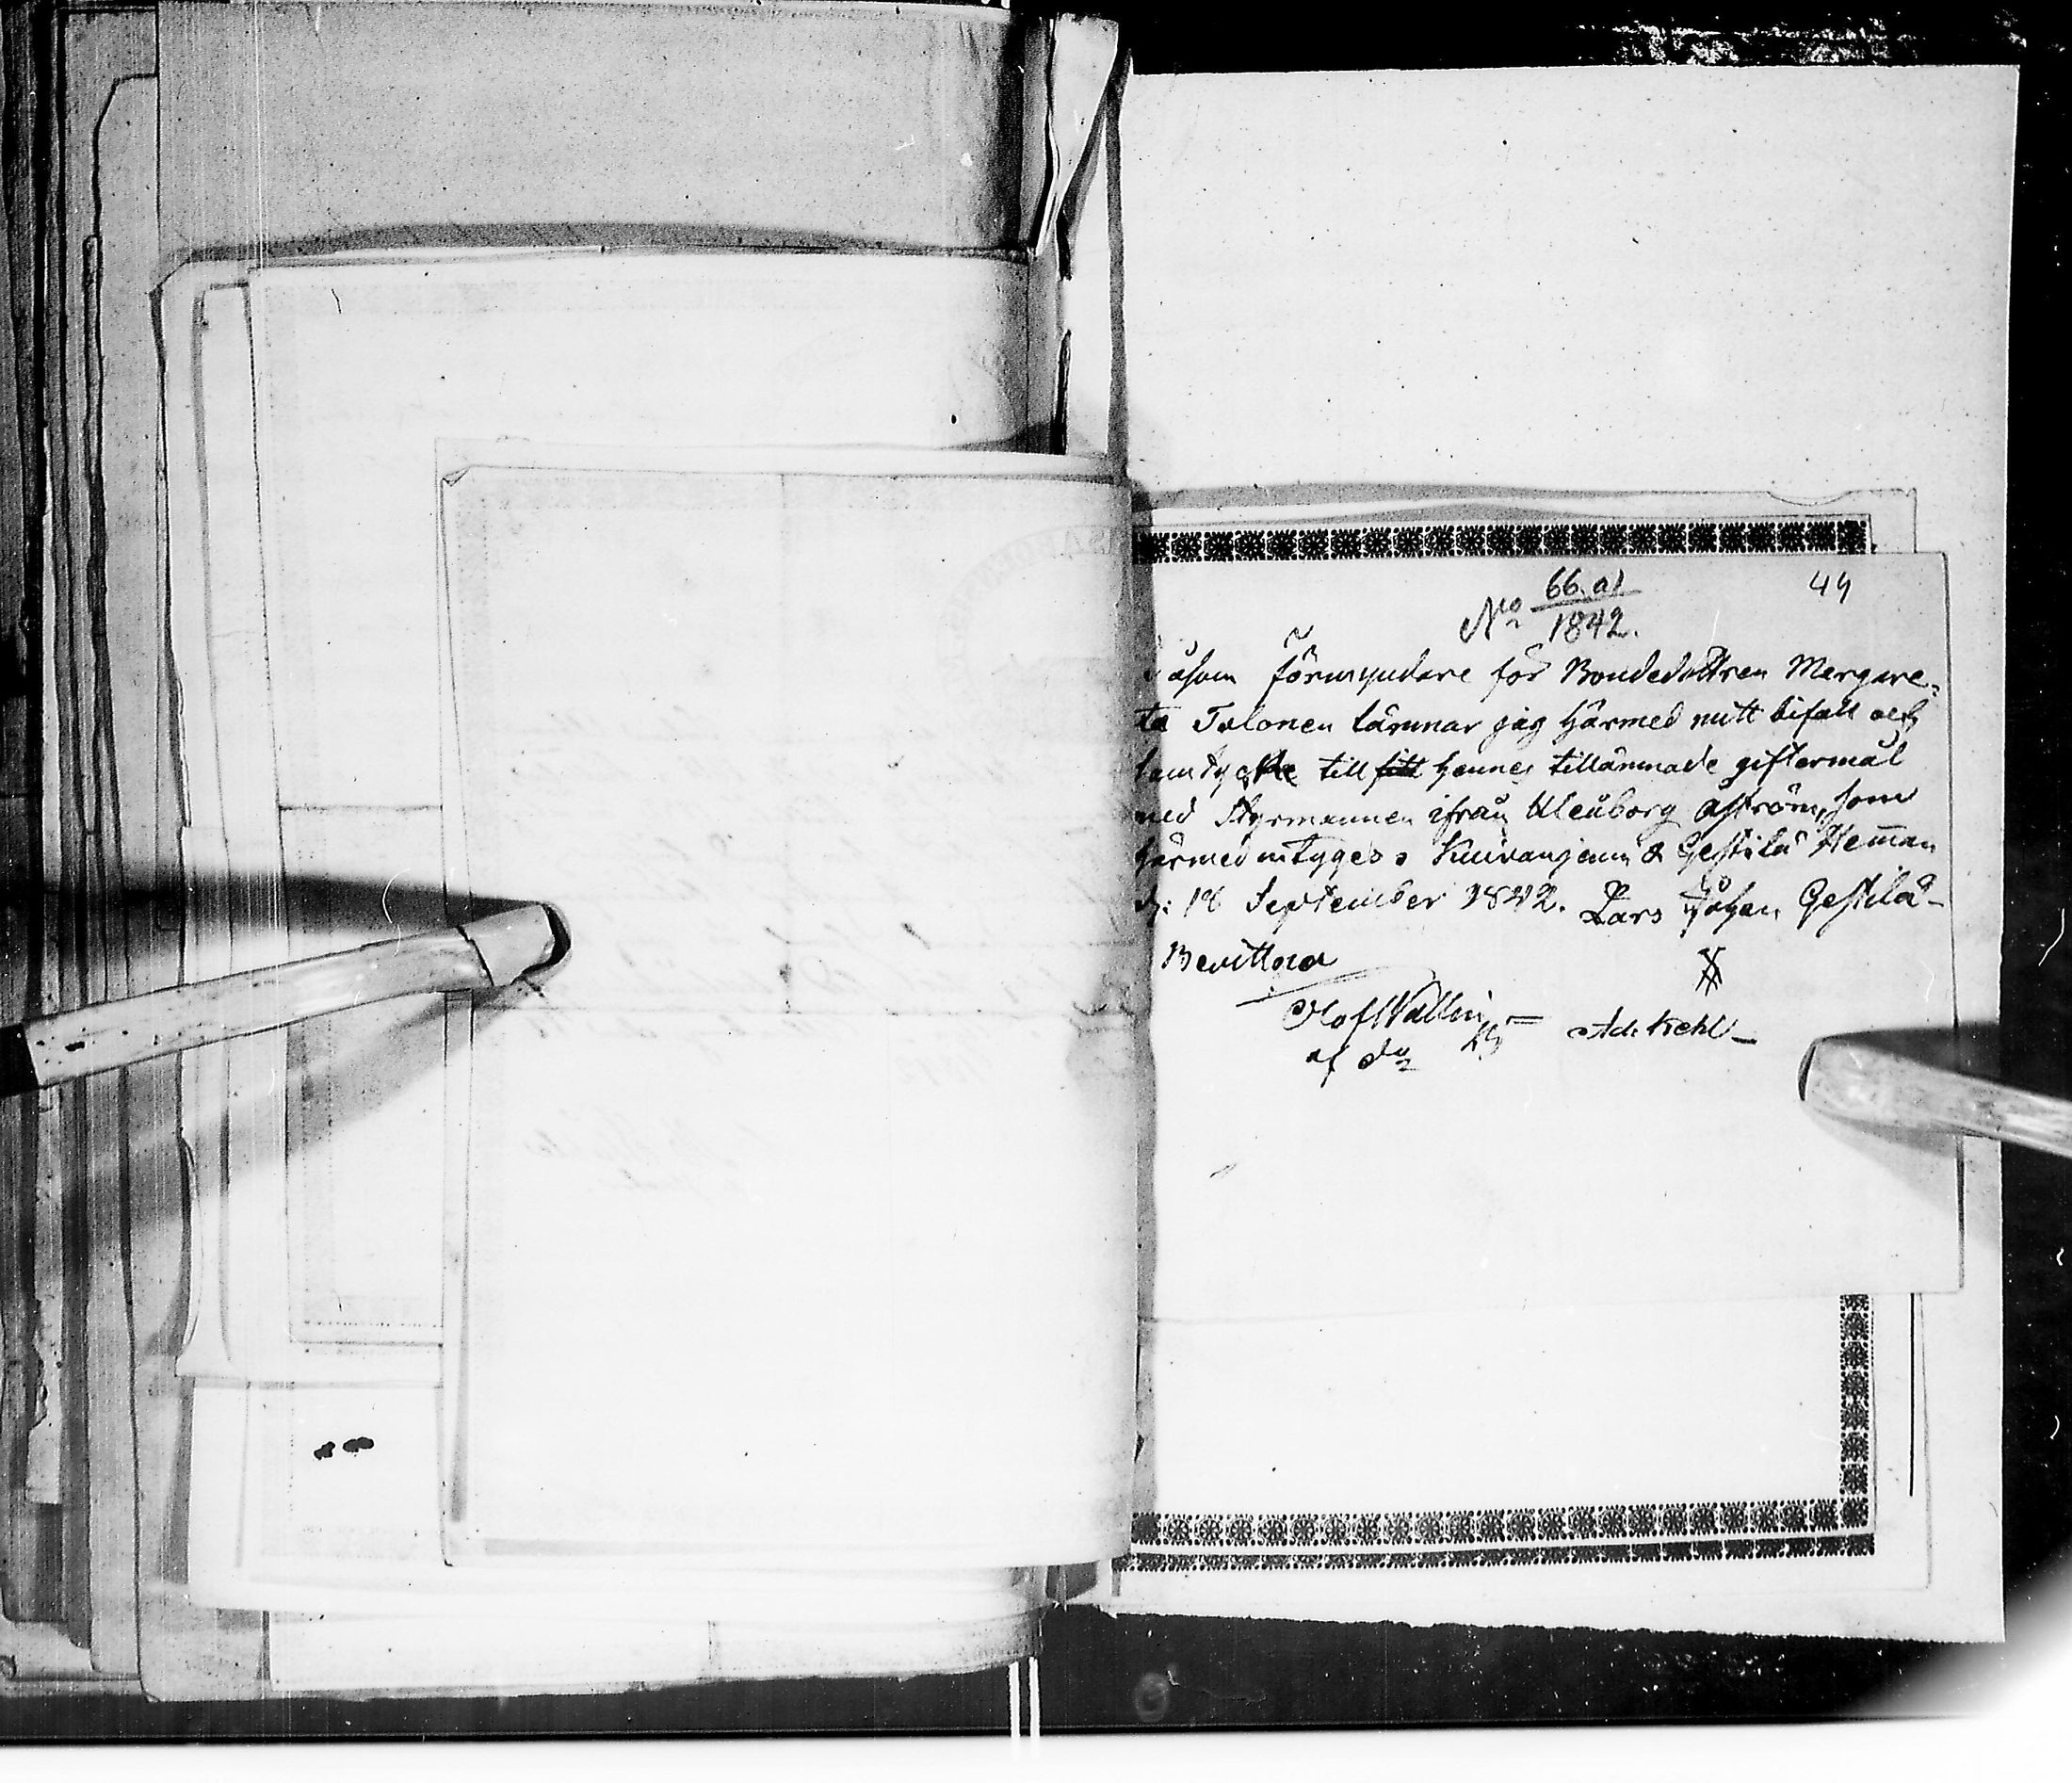 44
No 66. a)
1842.
åsom förmyndare för Bondedottren Margare-
ta Talonen lämnar jag härmed mitt bifall och
samtycke till hennes tillämnade giftermål
med Styrmannen ifrån Uleåborg Åström, som
härmed intygas Kuivaniemi & Gestilä Hemman
d: 18 September 1842. Lars Johan Gestilä-
Bevittna
Olof Wallin = Ad: Kehl-
af